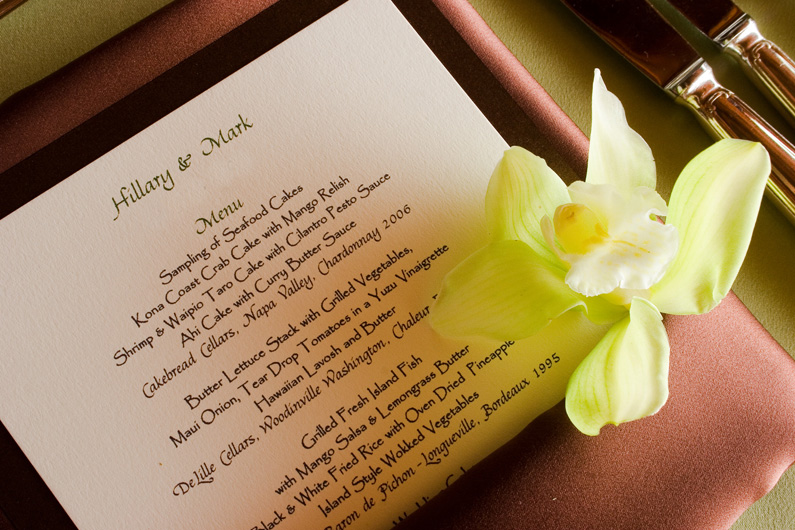 Hillary & Mark
Menu
Sampling of Seafood Cakes
Kona Coast Crab Cake with Mango Relish
Shrimp & Waipio Taro Cake with Cilantro Pesto Sauce
Ahi Cake with Curry Butter Sauce
Cakebread Cellars, Napa Valley, Chardonnay 2006
Butter Lettuce Stack with Grilled Vegetables,
Maui Onion, Tear Drop Tomatoes in a Yuzu Vinaigrette
Hawaiian Lavosh and Butter
DeLille Cellars, Woodinville Washington, Chaleur
Grilled Fresh Island Fish
with Mango Salsa & Lemongrass Butter
Black & White Fried Rice with Oven Dried Pineapple
Island Style Wokked Vegetables
Baron de Pichon-Longueville, Bordeaux 1995